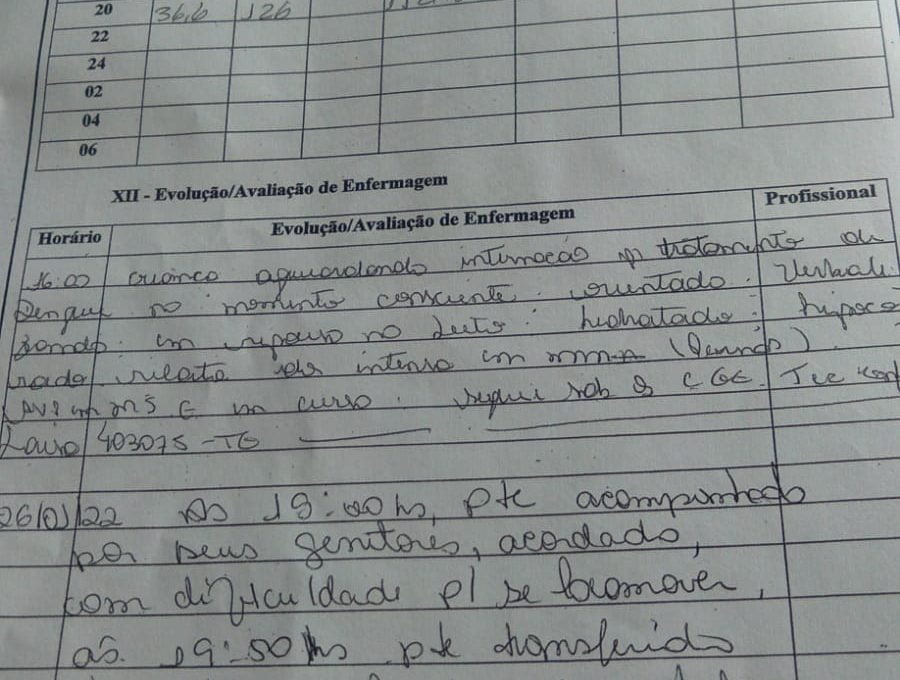 20 36,6 126
22
24
02
04
06
XII - Evolução/Avaliação de Enfermagem
Horário Evolução/Avaliação de Enfermagem Profissional
16:00 criança aguardando internação p/ tratamento de
Dengue no momento consciente. orientado. Verbali
zando. em repouso no leito. hidratado. hipoco
rado relata dor intensa em
AVP em MS E em curso. segue sob CGE. Tec
403075-TE
26/01/22 As 19:00hs, pte acompanhado
por seus genitores, acordado,
com dificuldade p/ se locomover,
as 19:50hs pte transferido